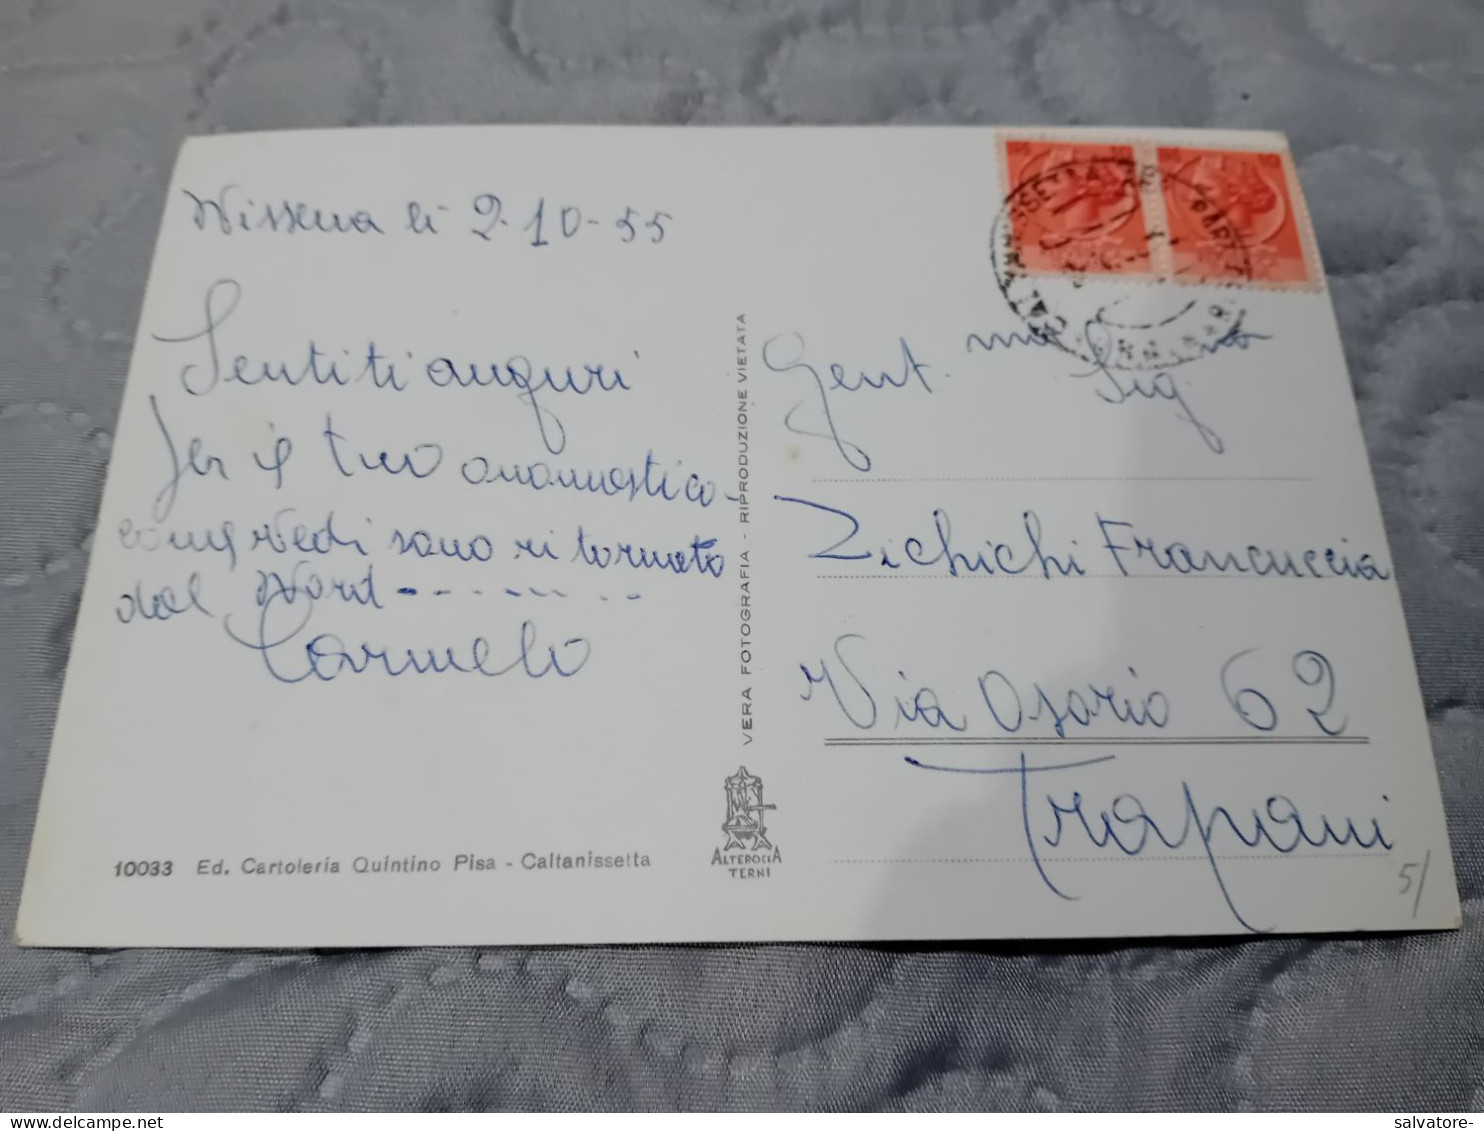 Nissena li 2-10-55
Sentiti auguri
per il tuo onomastico
come vedi sono ritornato
dal Nord - - - - - - - -
Carmelo
VERA FOTOGRAFIA - RIPRODUZIONE VIETATA
Gent.ma Sig.na
Zichichi Francuccia
Via Osorio 62
Trapani
ALTEROCCA
TERNI
10033 Ed. Cartoleria Quintino Pisa - Caltanissetta
5/
salvatore-